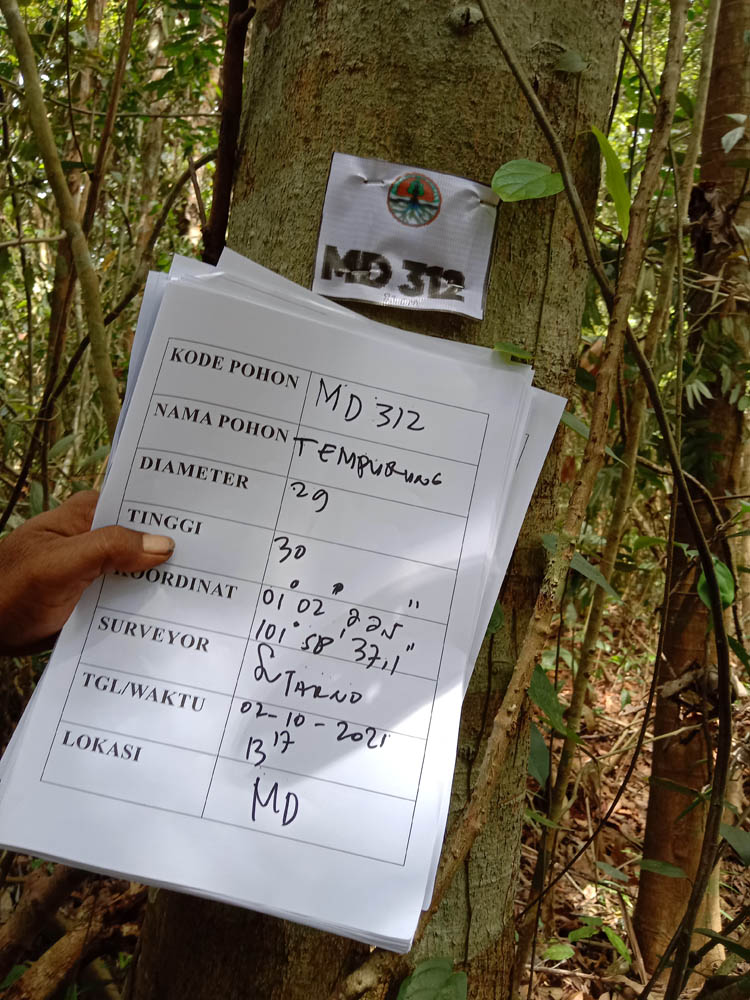 MD 312
KODE POHON MD 312
NAMA POHON TEMPURUNG
DIAMETER 29
TINGGI 30
KOORDINAT 01° 02' 22,5"
101° 58' 37,1"
SURVEYOR SUTARNO
TGL/WAKTU 02-10-2021
13 17
LOKASI MD